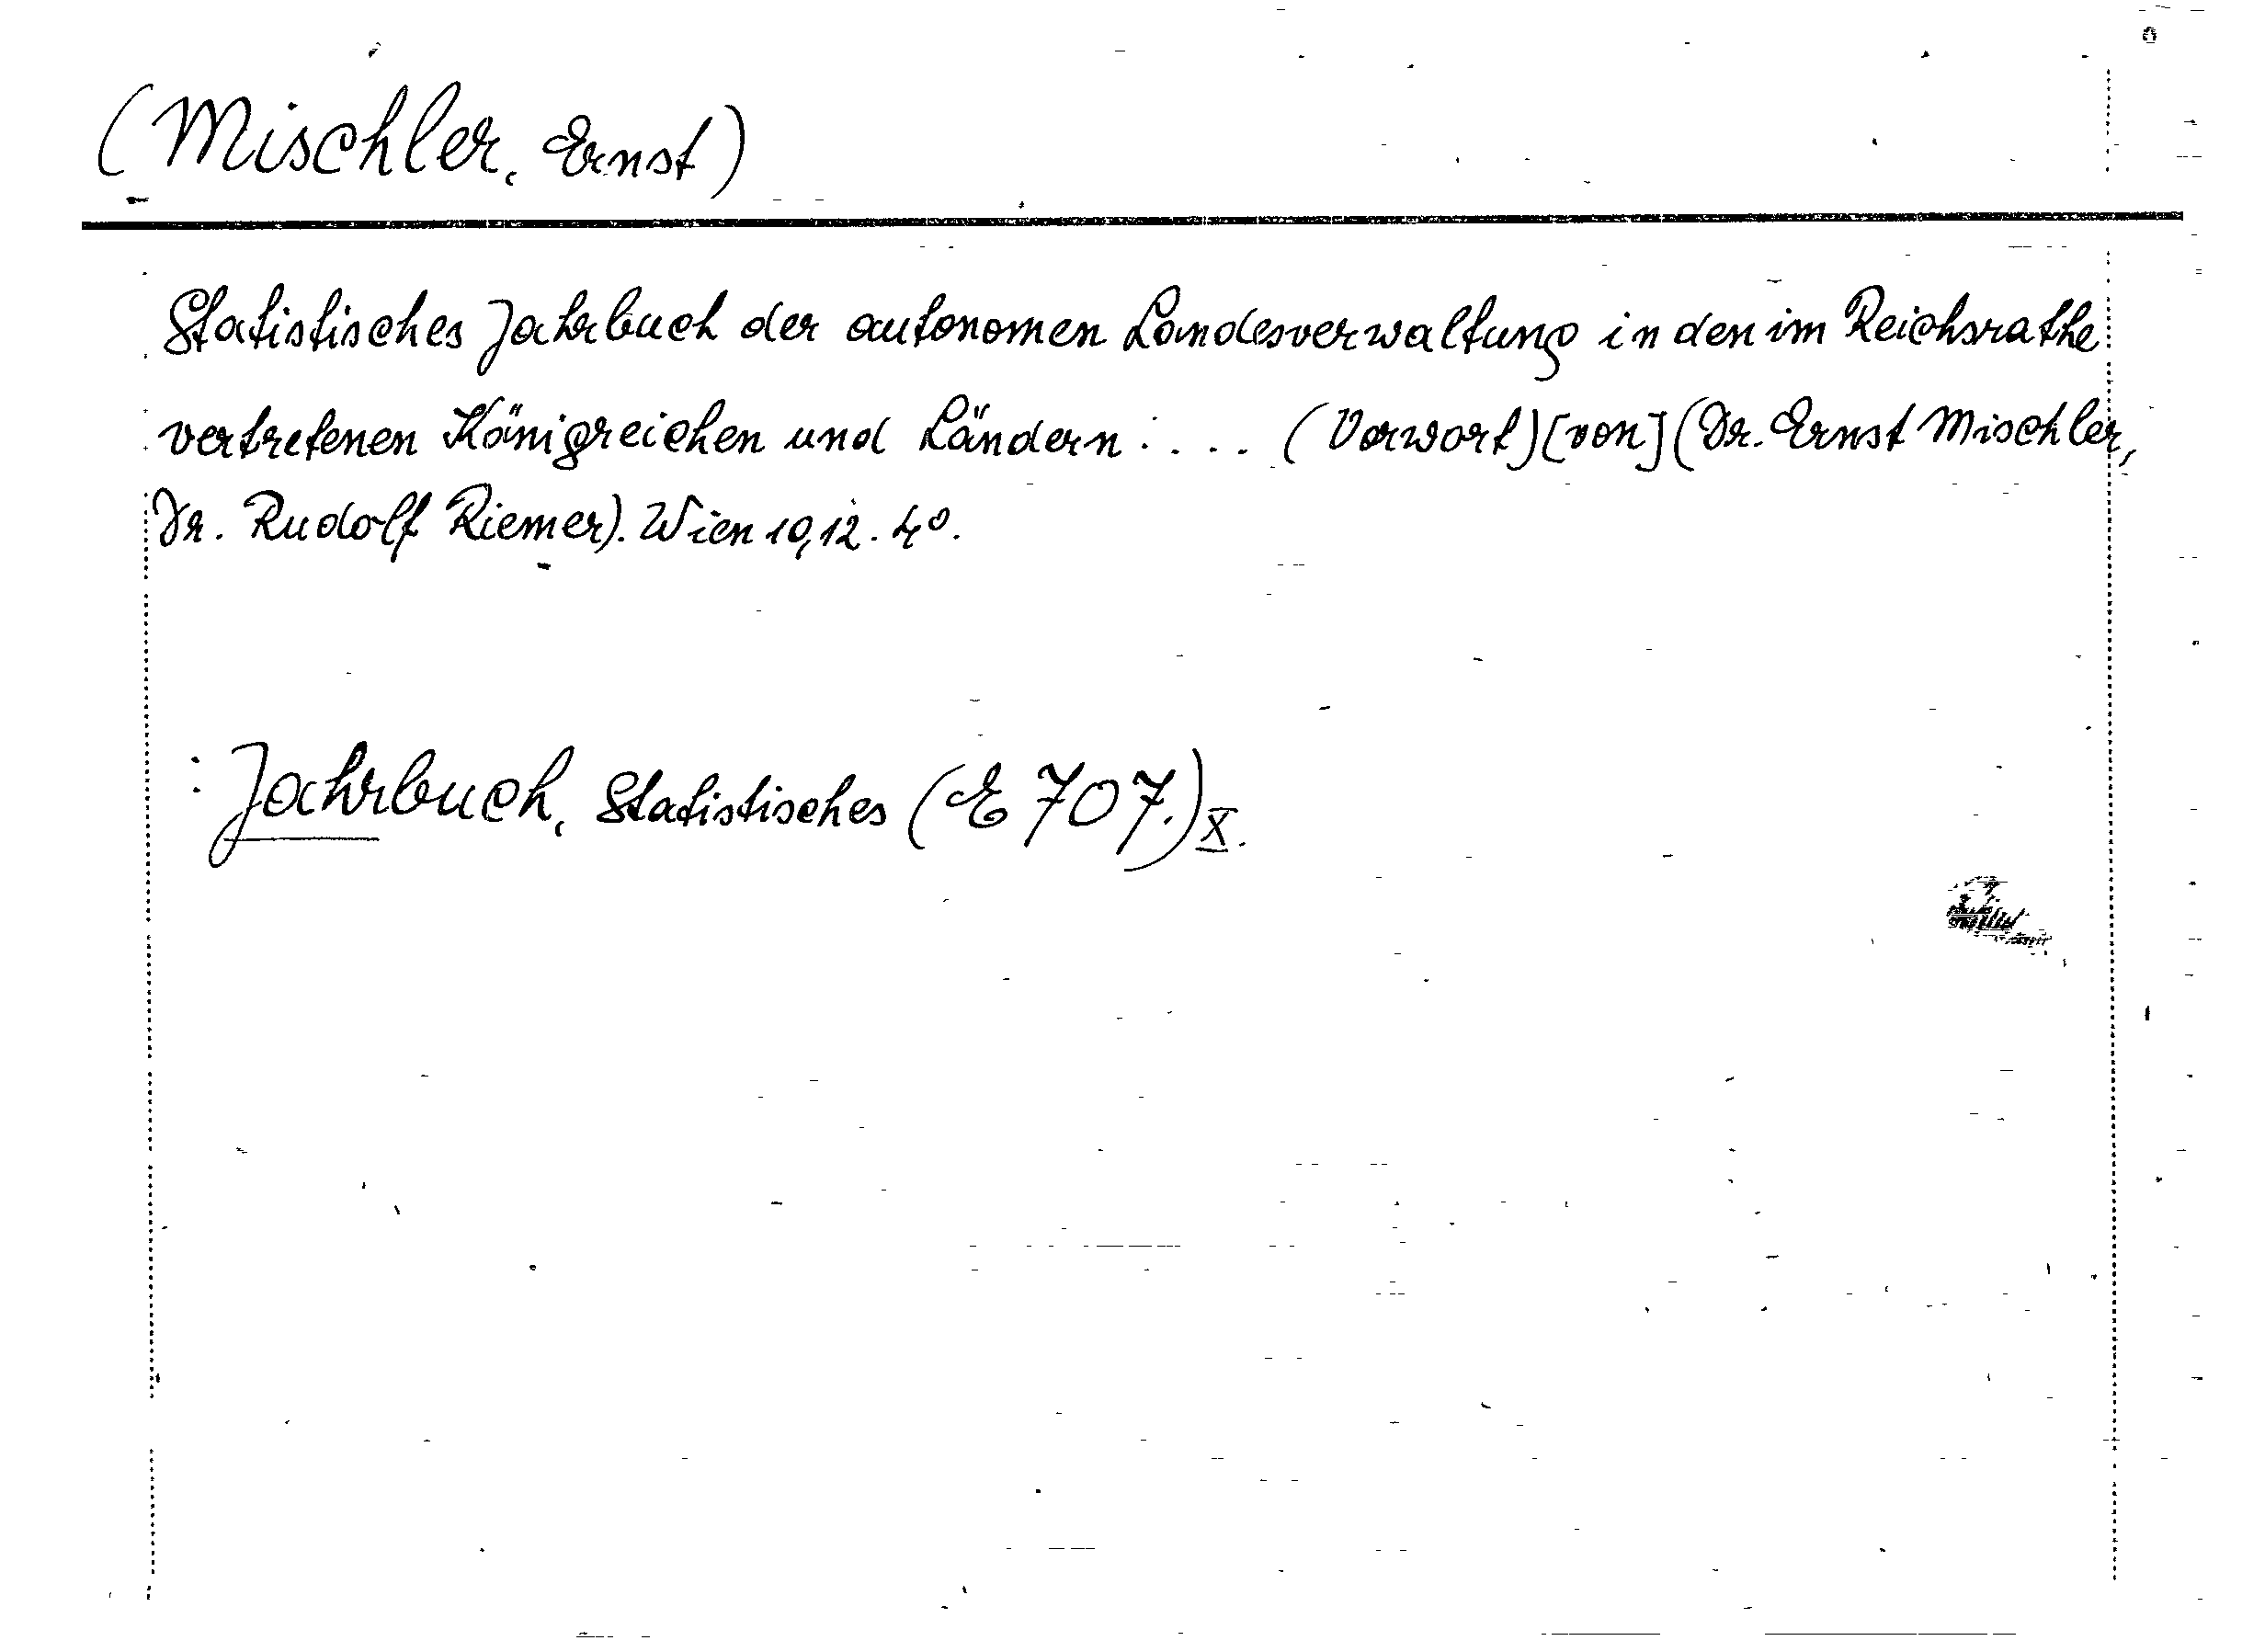 (Mischler, Ernst)
Statistisches Jahrbuch der autonomen Landesverwaltung in den im Reichsrathe
vertretenen Königreichen und Ländern: ... (Vorwort) [von] (Dr. Ernst Mischler,
Dr. Rudolf Riemer). Wien 10,12. 4°.
: Jahrbuch, Statistisches (E 707.) X.